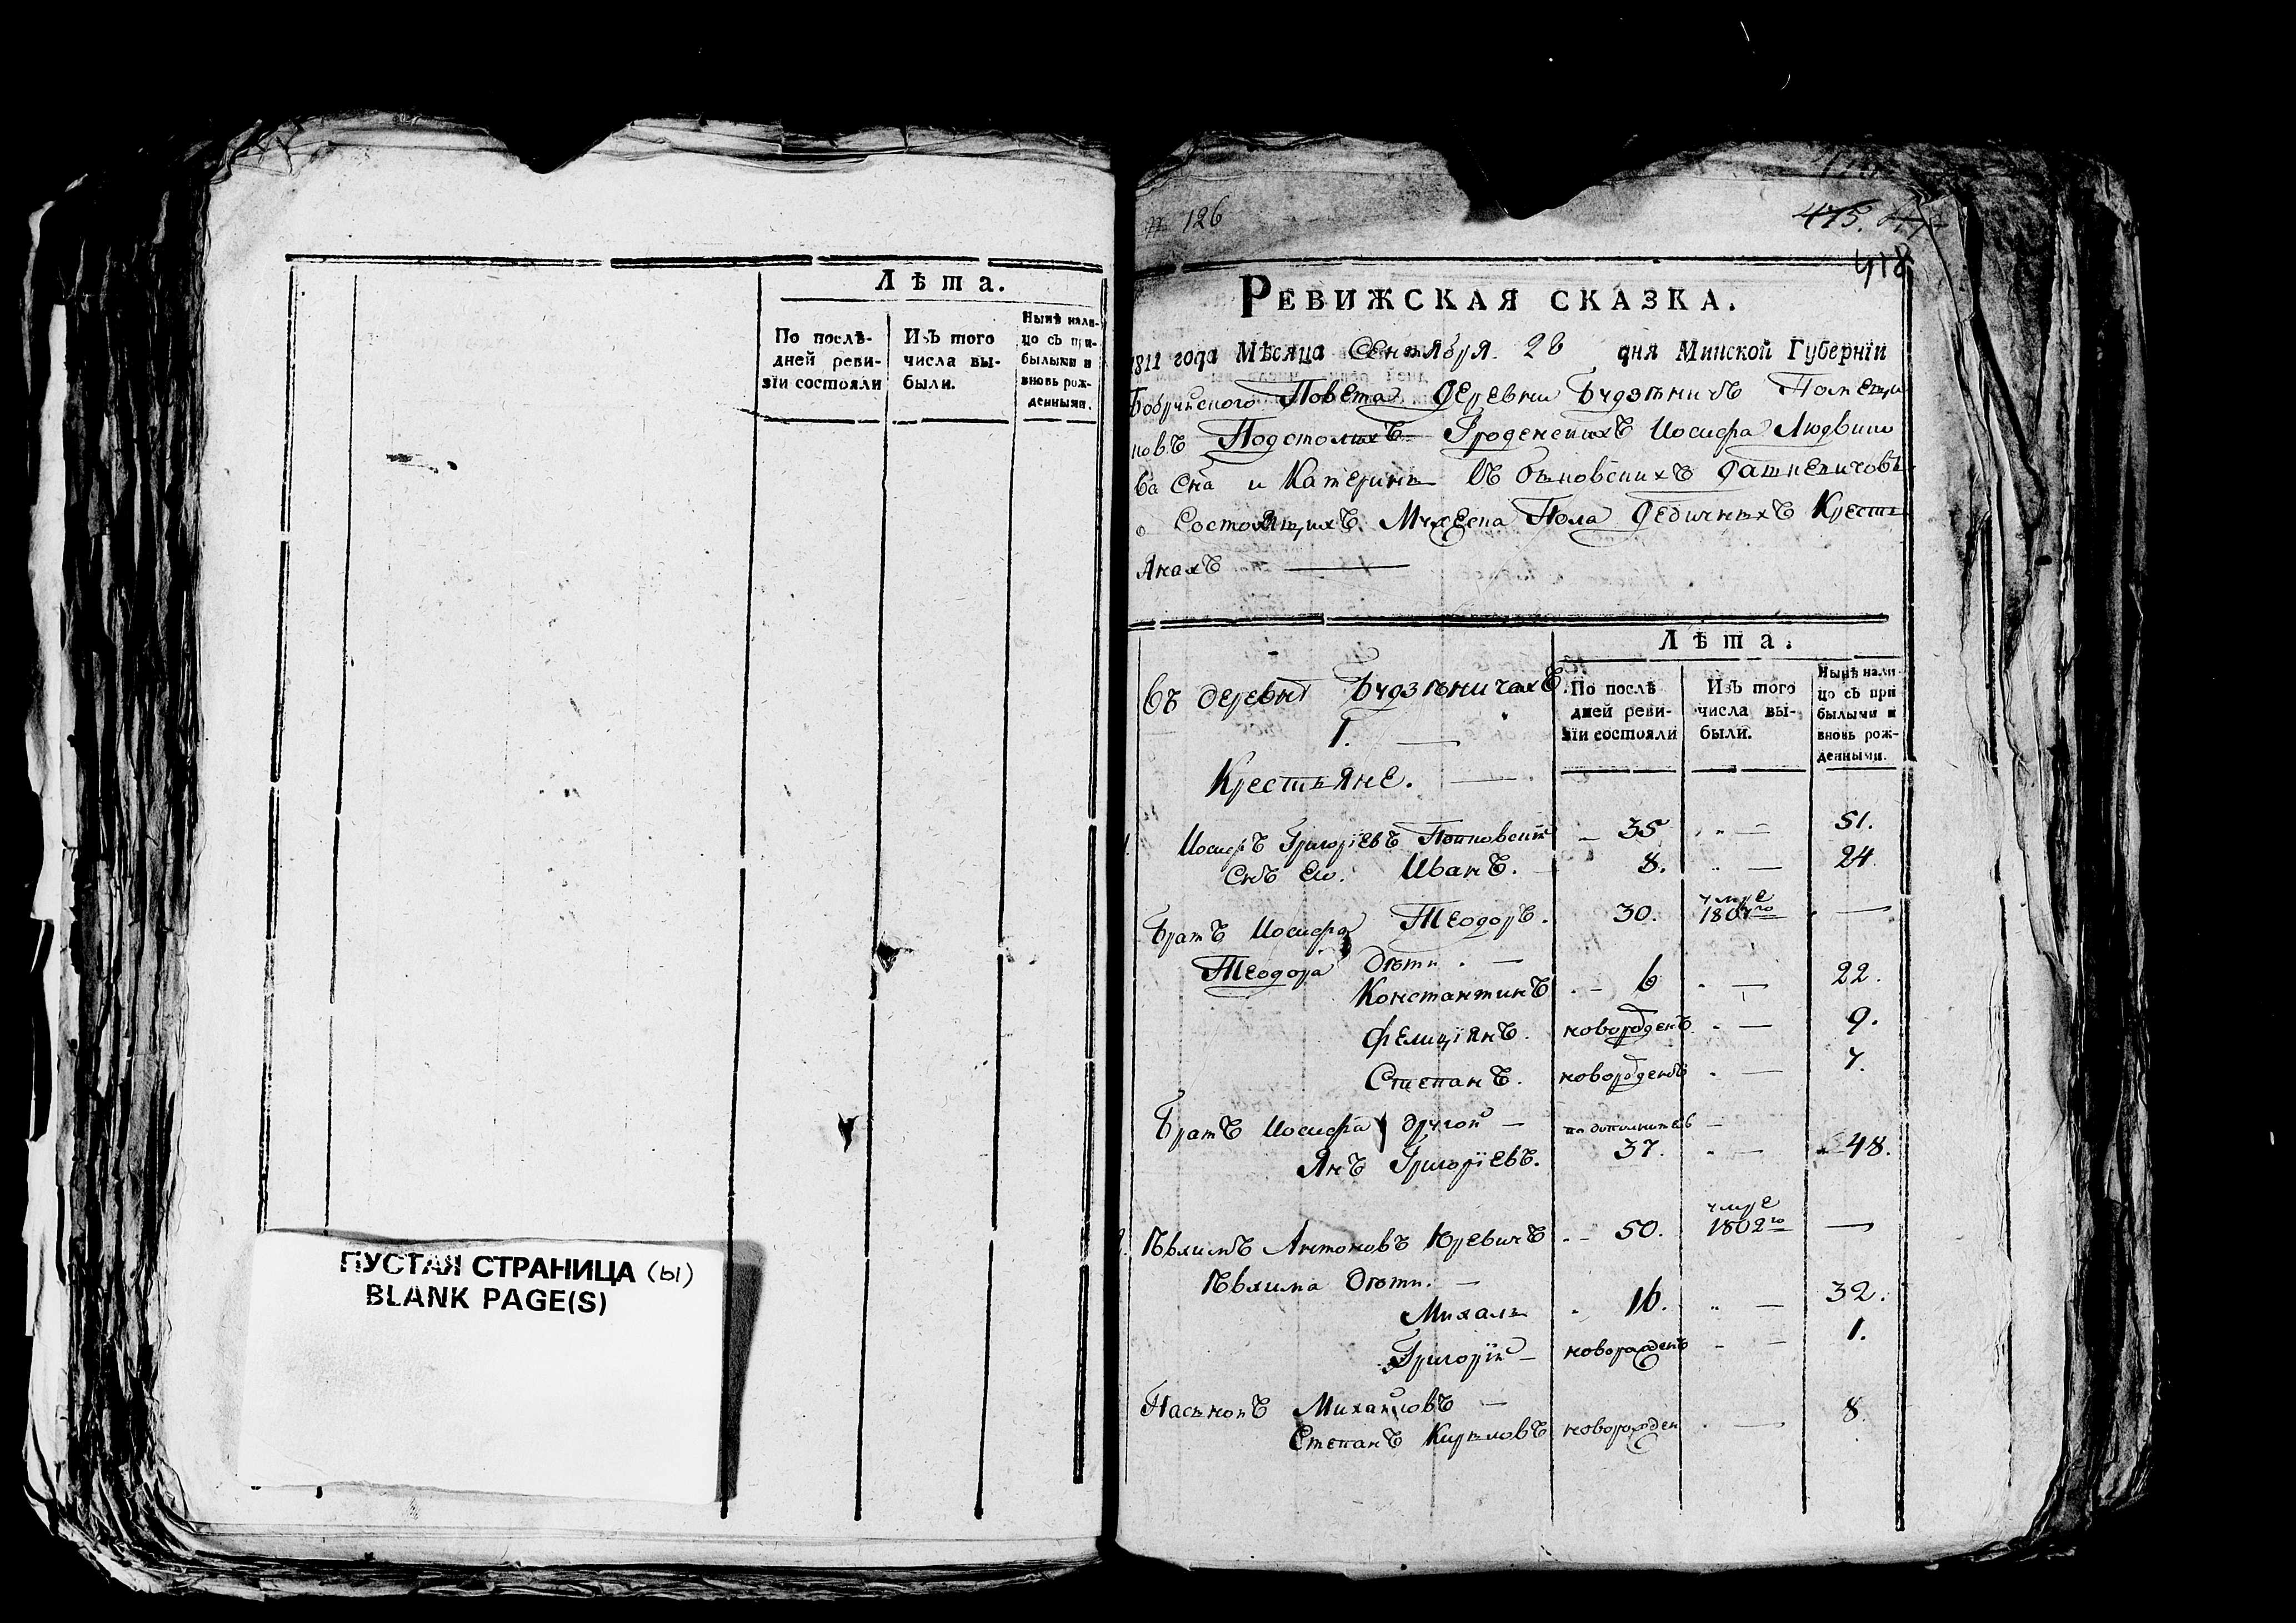 Лѣта.
По послѣ-
дней реви-
зїи состояли
Изъ того
числа вы-
были.
Нынѣ нали-
цо съ при-
былыми и
вновь рож-
денными.
ПУСТАЯ СТРАНИЦА (ы)
BLANK PAGE(S)
№ 126
475.
418
Ревижская сказка.
1811 года Мѣсяца Сентября 28 дня Минской Губернїи
Повета Деревни Помещи
ковъ Подстолихъ Гроденскихъ Иосифа Людвико
ва Сна и Катерины
о Состоящихъ Мужеска Пола Крестъ
Янахъ
Въ деревнѣ
1.
Крестьяне.
Лѣта.
По послѣ
дней реви-
зїи состояли
Изъ того
числа вы-
были.
Нынѣ нали-
цо съ при
былыми и
вновь рож-
денными.
Иосифъ Григорїевъ 35 51.
Снъ Ево. Иванъ. 8. 24
Братъ Иосифа Теодоръ. 30. умре 1804го
Теодора Дѣти.
Константинъ 6 22.
Фелицїянъ. новорожденъ 9.
Степанъ. новорожденъ 7.
Братъ Иосифа другой
Янъ Григорїевъ. 37. 48.
Антоновъ Юревичъ 50. умре 1802го
Дѣти.
Михаль 16. 32.
Григорїй новорожденъ 1.
Пасынокъ Михайловъ
Степанъ Кириловъ новорожден 8.